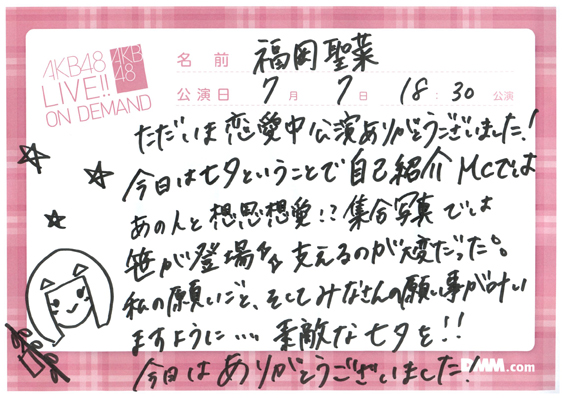 AKB48
LIVE!!
ON DEMAND
AKB
48
名前 福岡聖菜
公演日 7月 7日 18:30 公演
ただいま恋愛中公演ありがとうございました!
今日は七夕ということで自己紹介MCでは
あの人と想思想愛!?集合写真では
笹が登場 支えるのが大変だった。
私の願いごと、そしてみなさんの願い事が叶い
ますように… 素敵な七夕を!!
今日はありがとうございました!
DMM.com